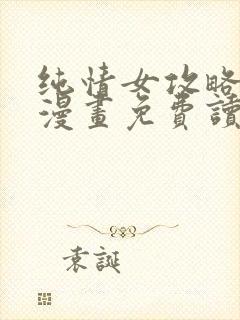 纯情女攻略
漫畫免費讀
袁誕